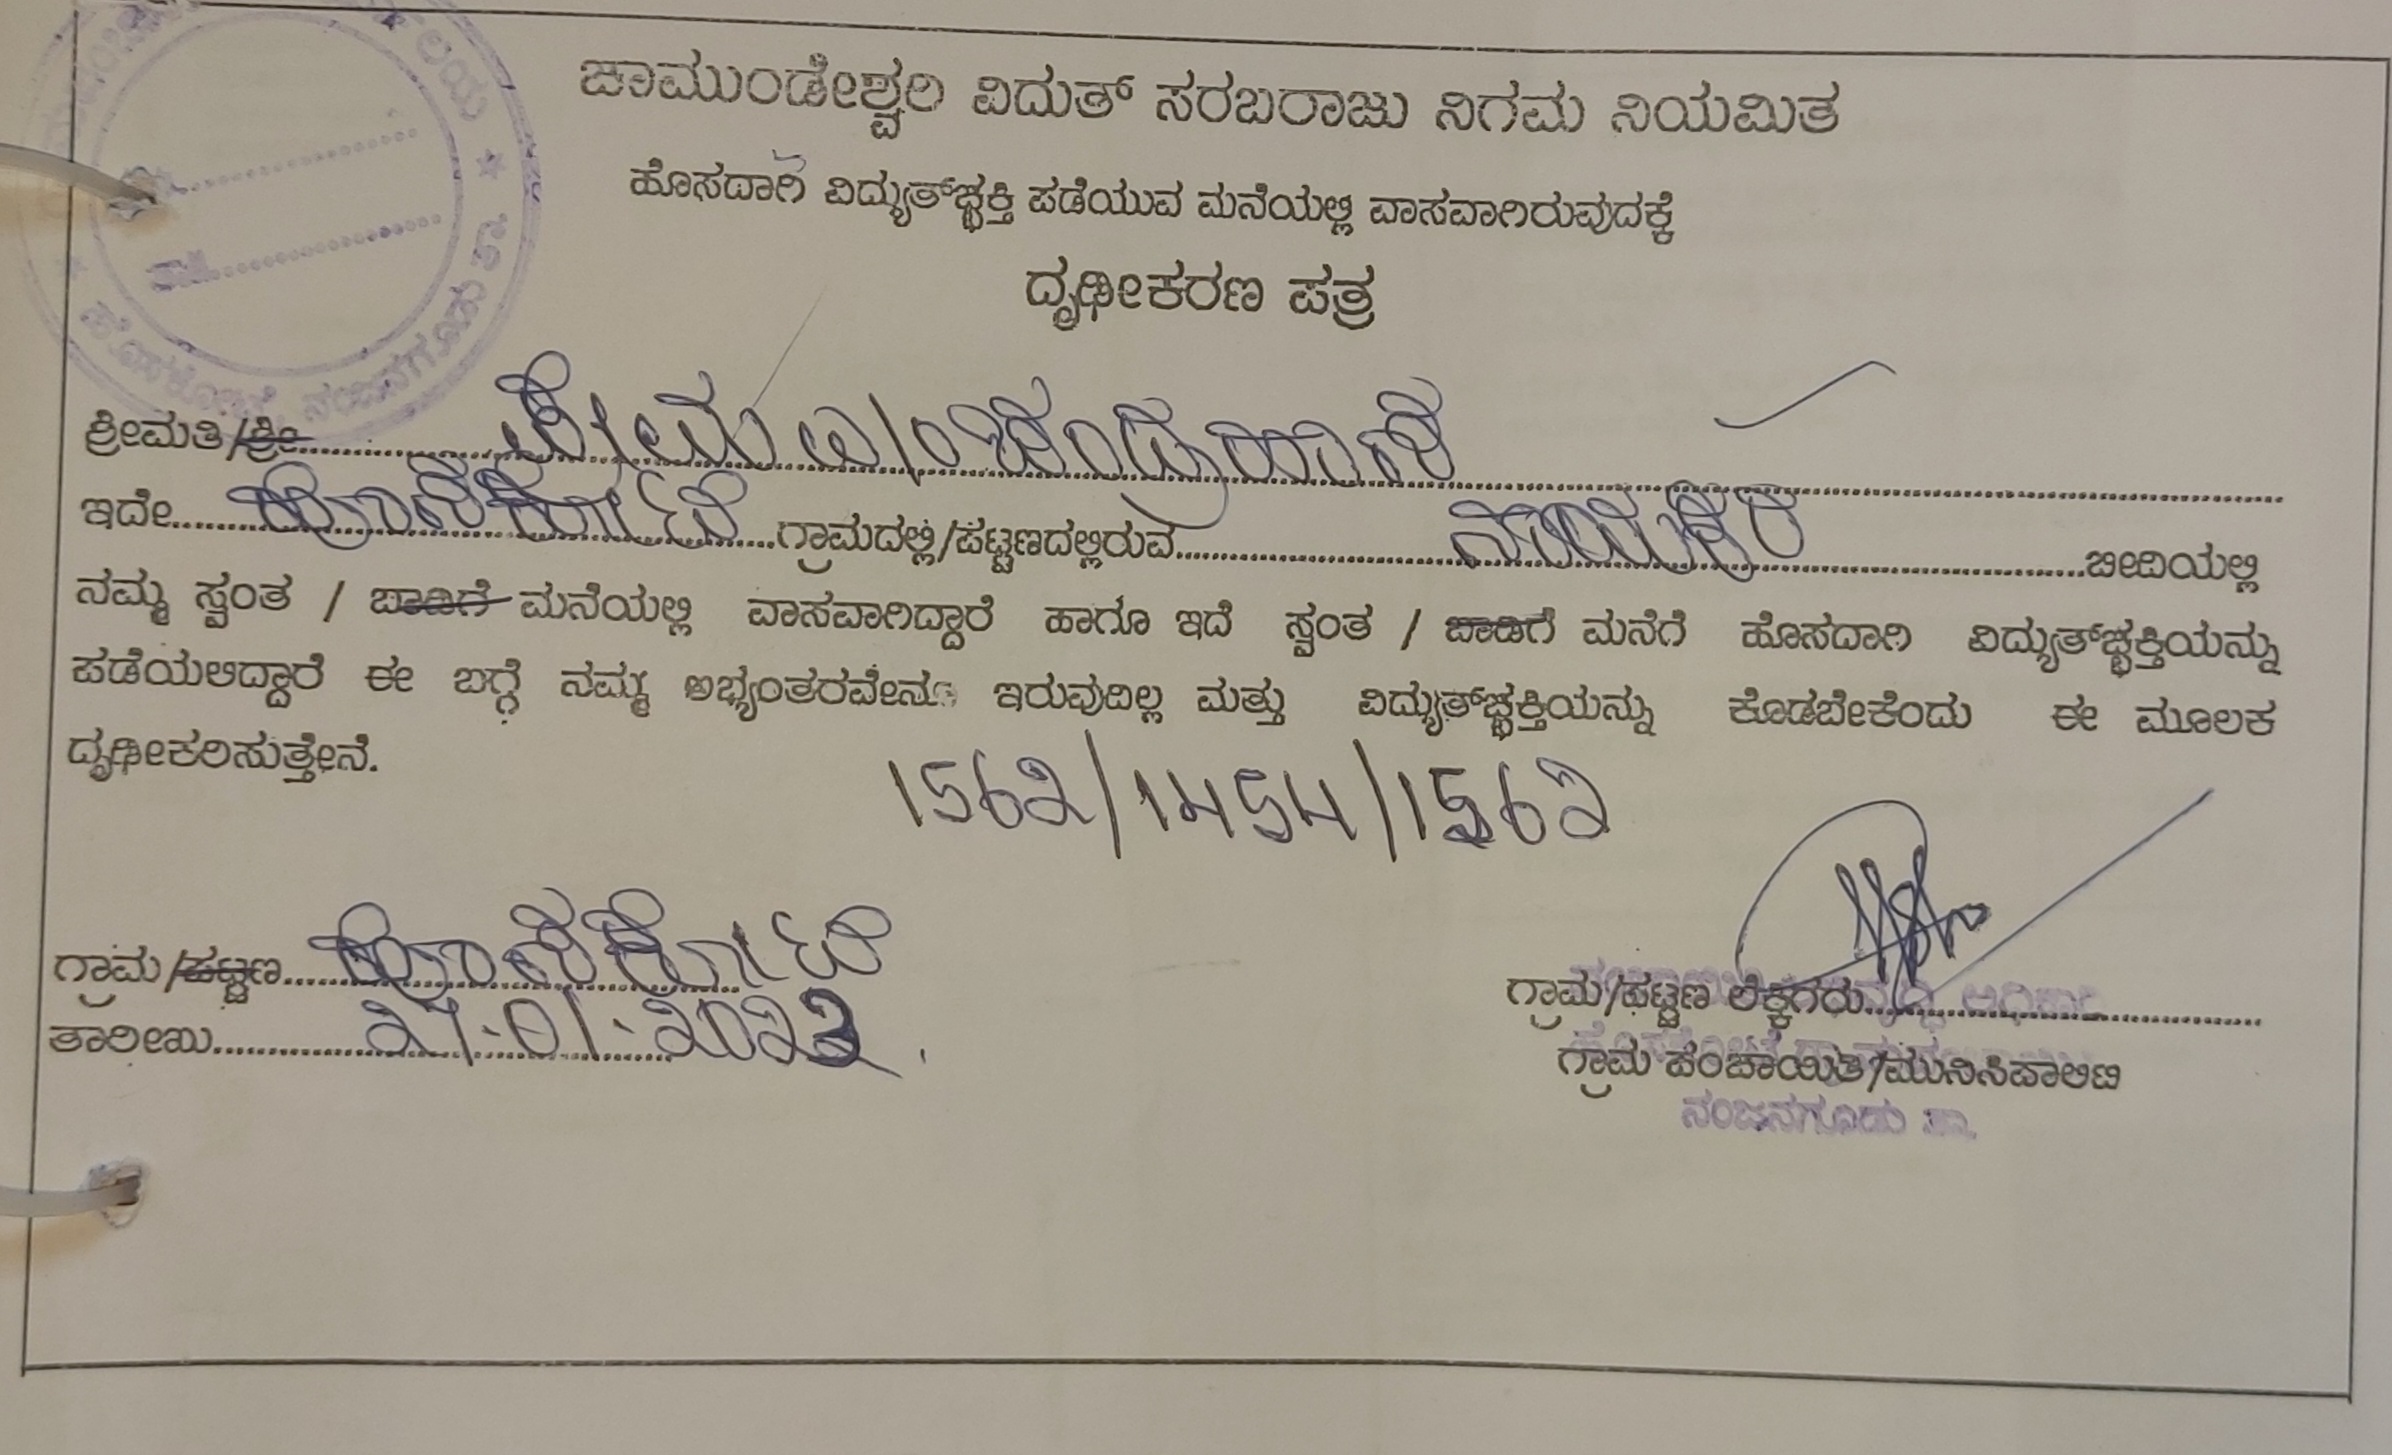 ಚಾಮುಂಡೇಶ್ವರಿ ವಿದುತ್ ಸರಬರಾಜು ನಿಗಮ ನಿಯಮಿತ
ಹೊಸದಾಗಿ ವಿದ್ಯುತ್‌ಚ್ಛಕ್ತಿ ಪಡೆಯುವ ಮನೆಯಲ್ಲಿ ವಾಸವಾಗಿರುವುದಕ್ಕೆ
ದೃಢೀಕರಣ ಪತ್ರ
ಶ್ರೀಮತಿ/ಶ್ರೀ
ಇದೇ ಹೊಸಕೋಟೆ ಗ್ರಾಮದಲ್ಲಿ/ಪಟ್ಟಣದಲ್ಲಿರುವ ನಾಯಕರ ಬೀದಿಯಲ್ಲಿ
ನಮ್ಮ ಸ್ವಂತ / ಬಾಡಿಗೆ ಮನೆಯಲ್ಲಿ ವಾಸವಾಗಿದ್ದಾರೆ ಹಾಗೂ ಇದೆ ಸ್ವಂತ / ಬಾಡಿಗೆ ಮನೆಗೆ ಹೊಸದಾಗಿ ವಿದ್ಯುತ್‌ಚ್ಛಕ್ತಿಯನ್ನು
ಪಡೆಯಲಿದ್ದಾರೆ ಈ ಬಗ್ಗೆ ನಮ್ಮ ಅಭ್ಯಂತರವೇನೂ ಇರುವುದಿಲ್ಲ ಮತ್ತು ವಿದ್ಯುತ್‌ಚ್ಛಕ್ತಿಯನ್ನು ಕೊಡಬೇಕೆಂದು ಈ ಮೂಲಕ
ದೃಢೀಕರಿಸುತ್ತೇನೆ.
1562/1454/1562
ಗ್ರಾಮ/ಪಟ್ಟಣ ಹೊಸಕೋಟೆ
ತಾರೀಖು 27-01-2022
ಗ್ರಾಮ/ಪಟ್ಟಣ ಲೆಕ್ಕಿಗರು
ಗ್ರಾಮ ಪಂಚಾಯಿತಿ/ಮುನಿಸಿಪಾಲಿಟಿ
ನಂಜನಗೂಡು ತಾ.